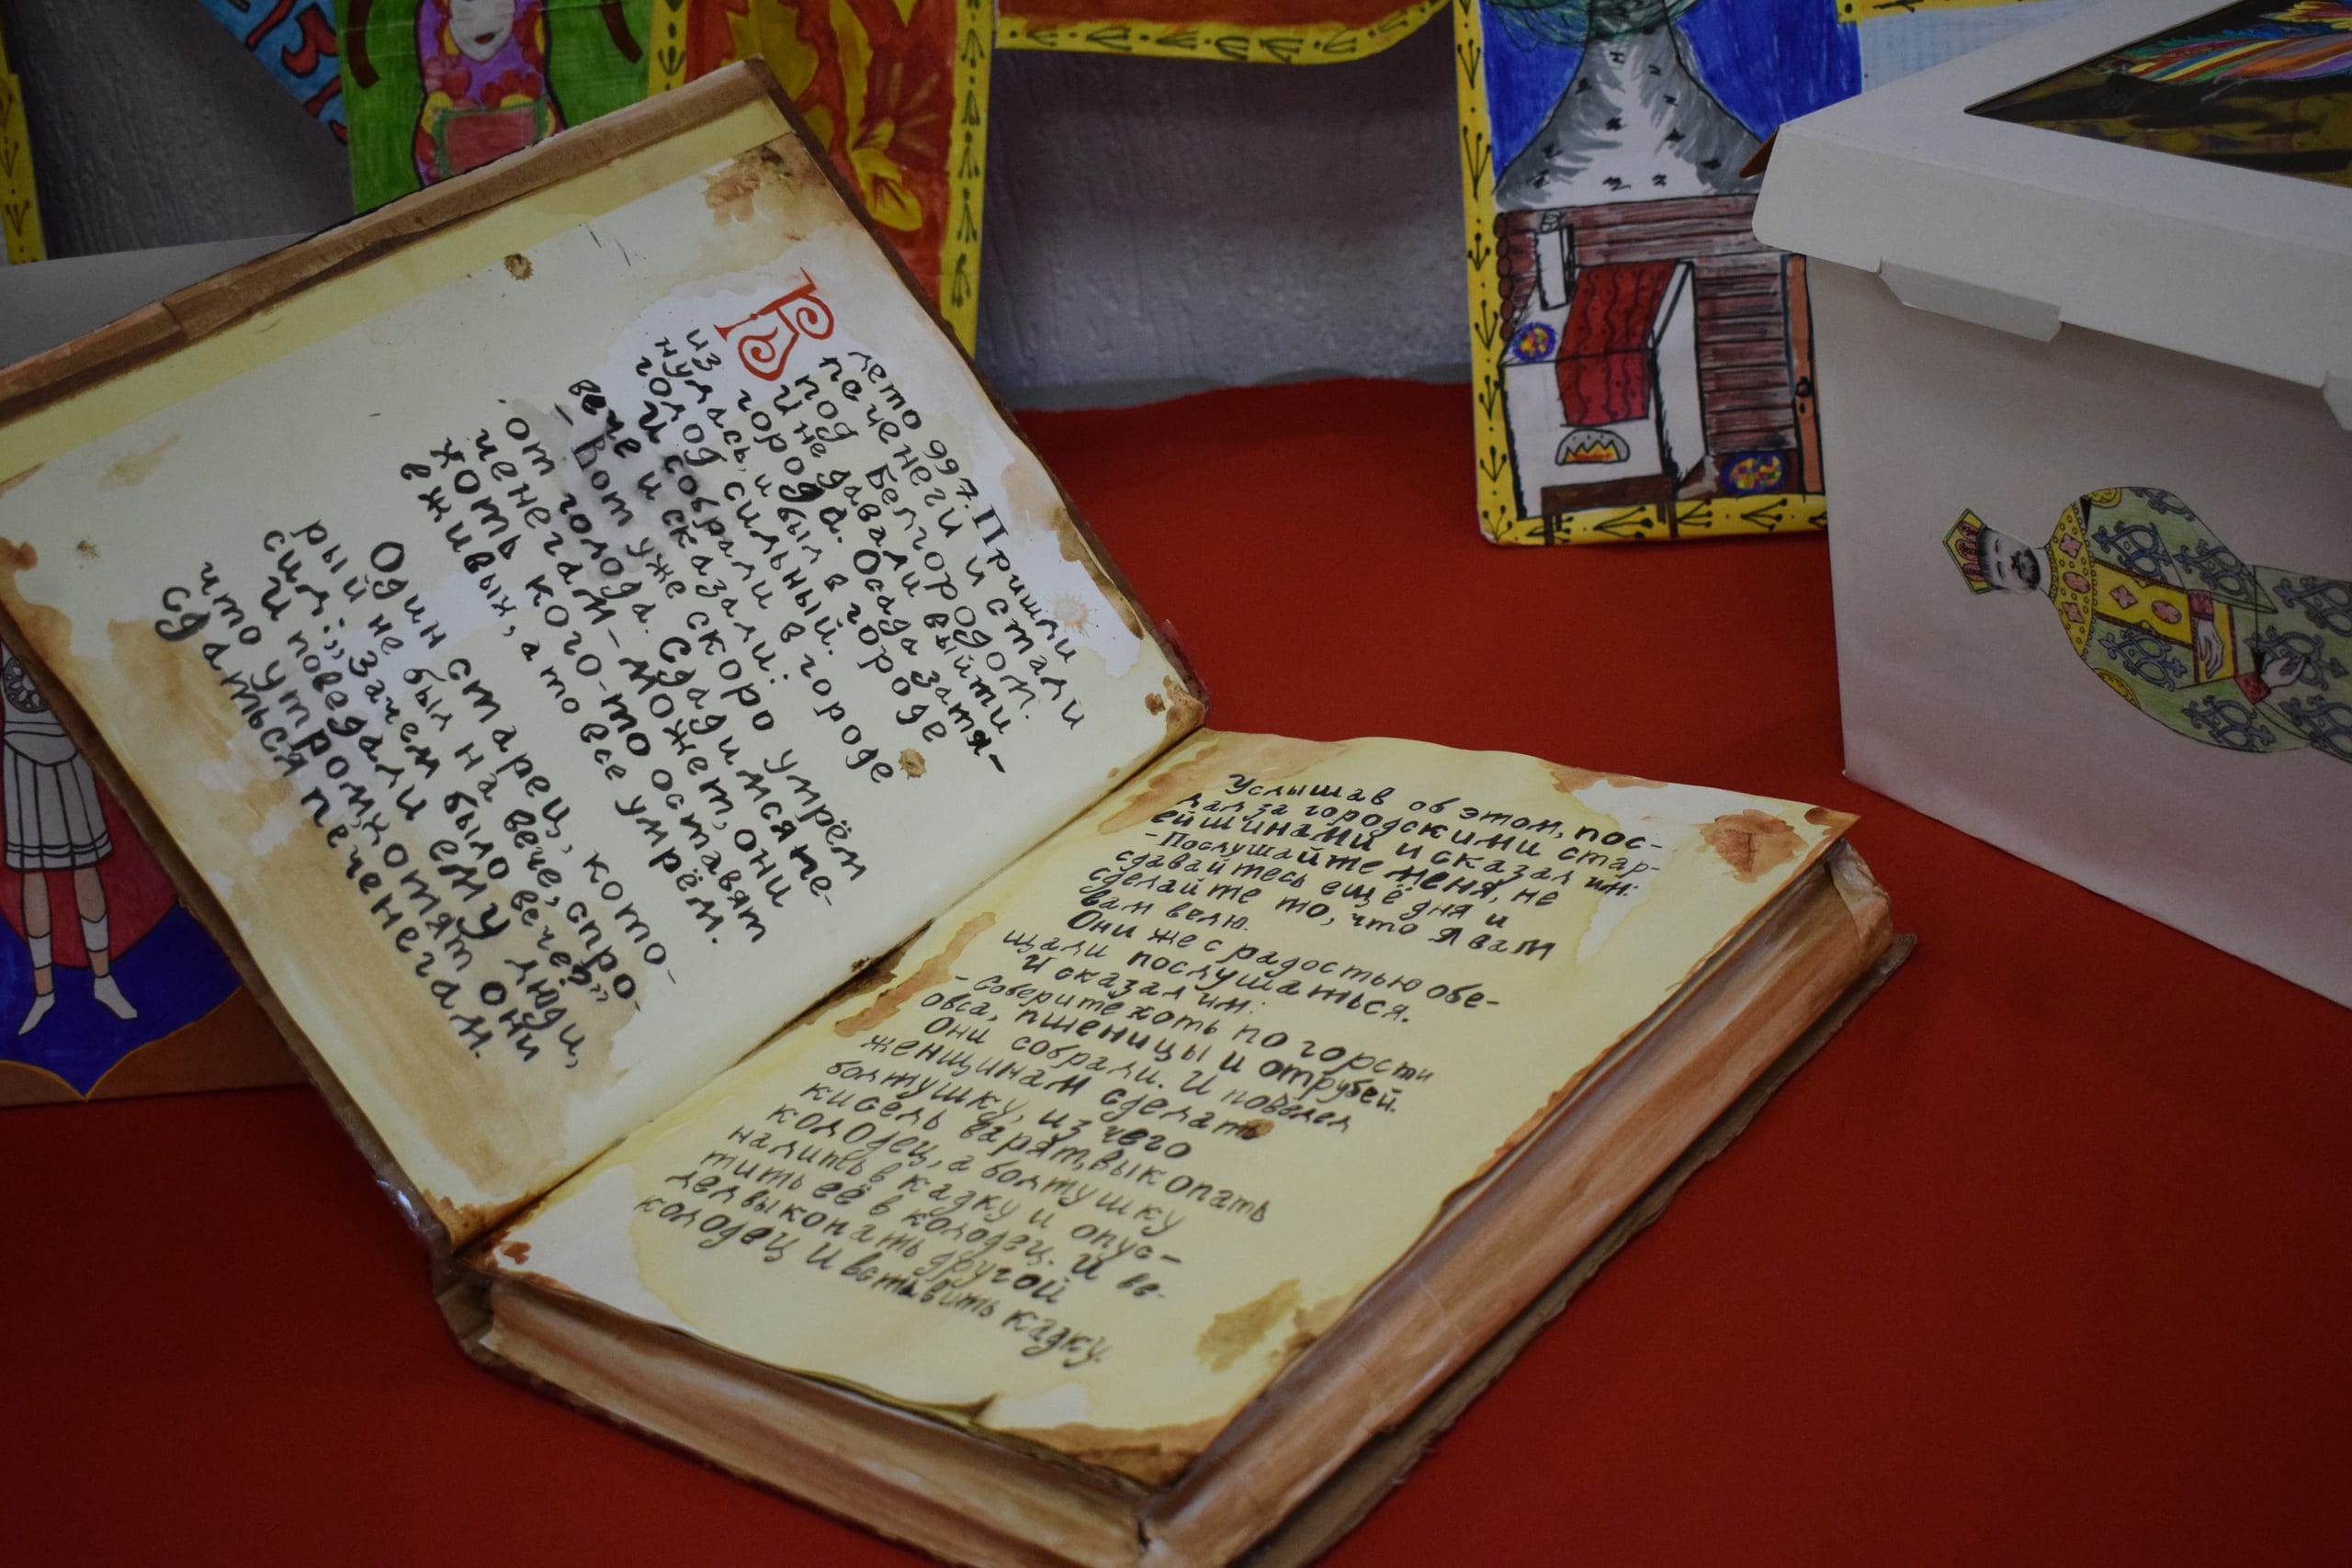 В лето 997. Пришли
печенеги и стали
под Белгородом.
И не давали выйти
из города. Осада затя-
нулась, и был в городе
голод сильный.
И собрали в городе
вече и сказали:
- Вот уже скоро умрём
от голода. Сдадимся пе-
ченегам - может, они
хоть кого-то оставят
в живых, а то все умрём.
Один старец, кото-
рый не был на вече, спро-
сил: „Зачем было вече?"
И поведали ему люди,
что утром хотят они
сдаться печенегам.
Услышав об этом, пос-
лал за городскими стар-
ейшинами и сказал им:
- Послушайте меня, не
сдавайтесь ещё дня и
сделайте то, что я вам
вам велю.
Они же с радостью обе-
щали послушаться.
И сказал им:
- Соберите хоть по горсти
овса, пшеницы и отрубей.
Они собрали. И повелел
женщинам сделать
болтушку, из чего
кисель варят, выкопать
колодец, а болтушку
налить в кадку и опус-
тить её в колодец. И ве-
лел выкопать другой
колодец и вставить кадку.